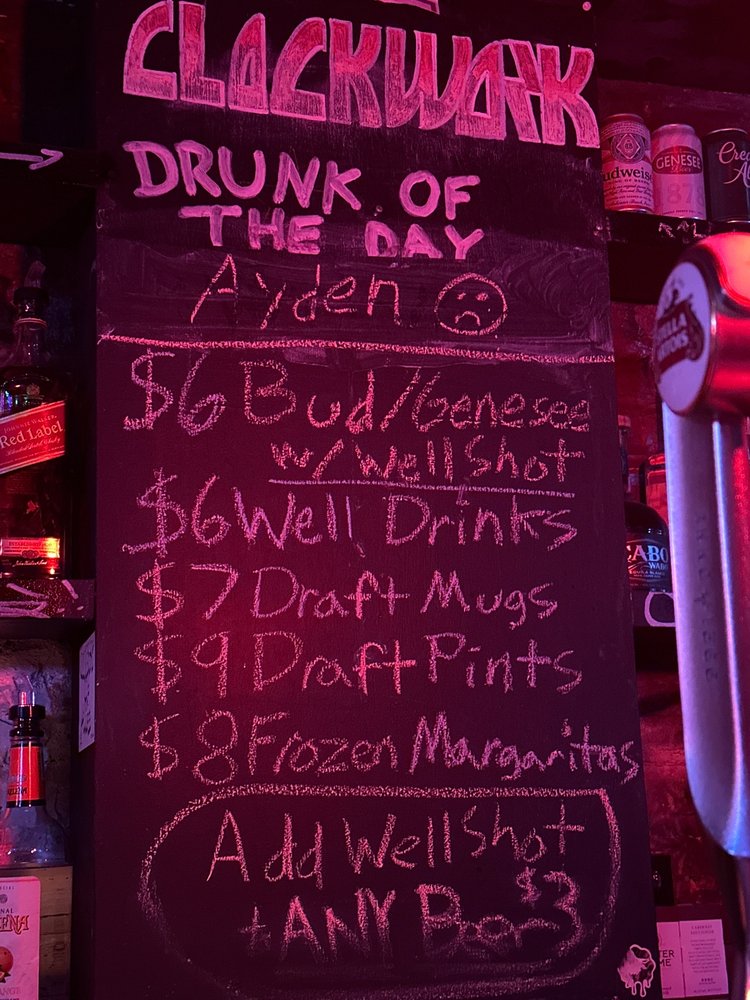 CLOCKWORK
DRUNK OF
THE DAY
Ayden
$6 Bud/Genesee
w/Well Shot
$6 Well Drinks
$7 Draft Mugs
$9 Draft Pints
$8 Frozen Margaritas
Add Well Shot
+ ANY Beer $3
udweis
GENESEE
Cre
JOHNNIE WALKER
Red Label
CABO
WABO